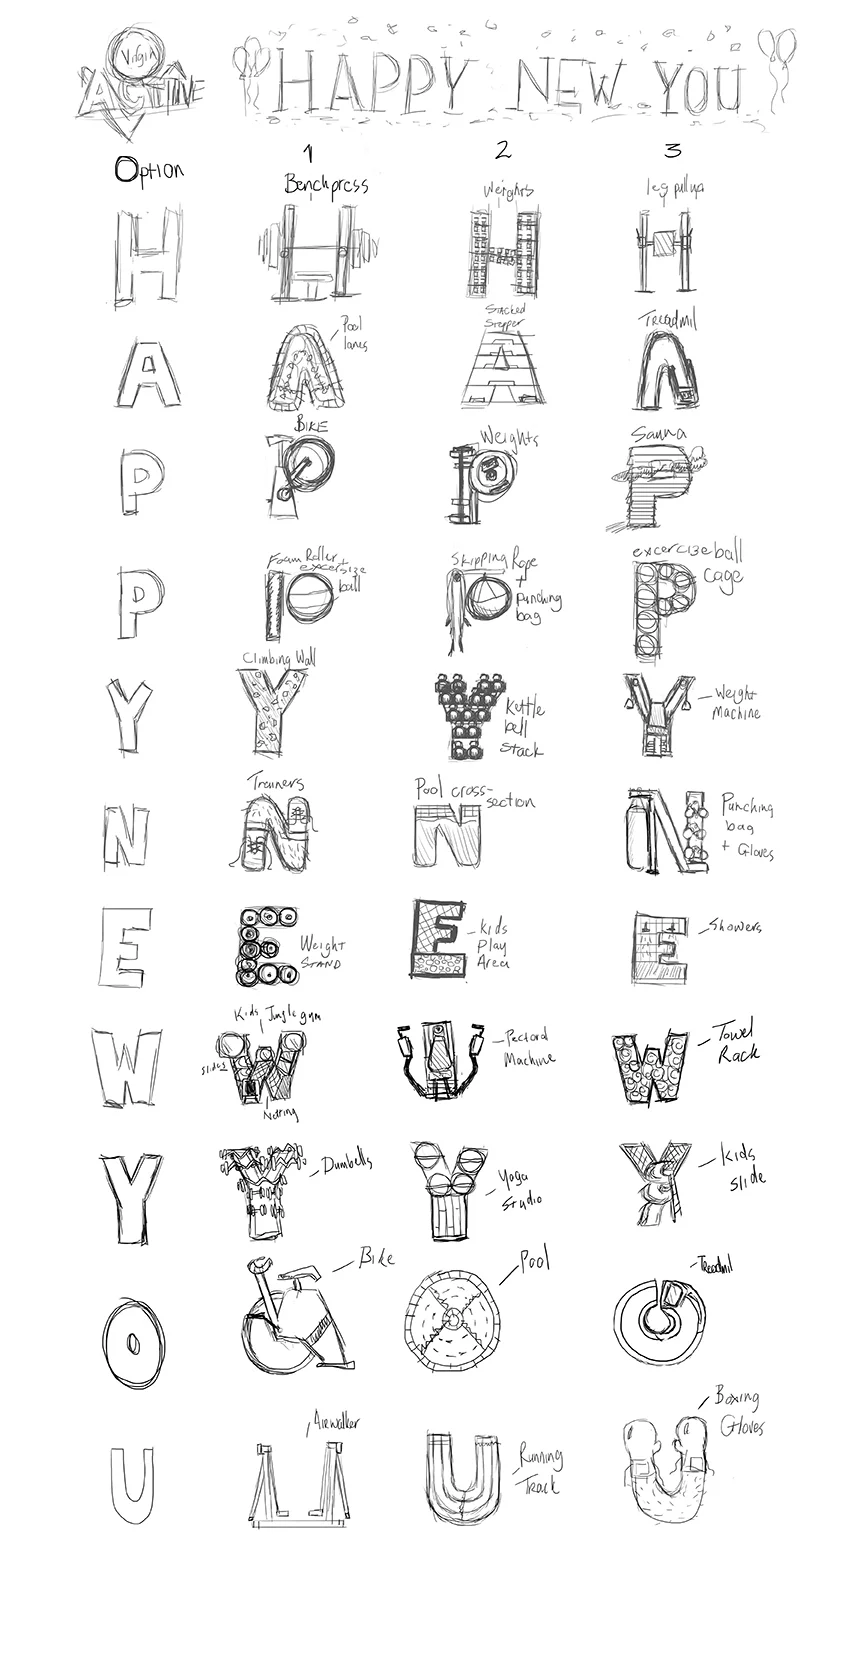 Virgin
ACTIVE
HAPPY NEW YOU
Option 1 2 3
H
Benchpress
Weights
leg pull up
A
Pool
lanes
Stacked
Stepper
Treadmil
P
BIKE
Weights
Sauna
P
Foam Roller
+
excersize
ball
Skipping Rope
+
punching
bag
excercize ball
cage
Y
Climbing Wall
Kettle
bell
stack
Weight
Machine
N
Trainers
Pool cross-
section
Punching
bag
+ Gloves
E
Weight
STAND
Kids
Play
Area
Showers
W
Kids Jungle gym
slides
Netting
Pectoral
Machine
Towel
Rack
Y
Dumbells
Yoga
Studio
Kids
slide
O
Bike
Pool
Treadmil
U
Airwalker
Running
Track
Boxing
Gloves